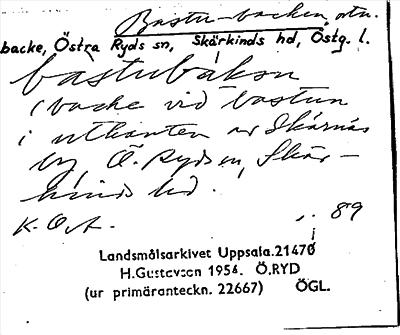 Bastu-backen, ortn.
backe, Östra Ryds sn, Skärkinds hd, Östg. l.
bastubakən
(backe vid bastun
i utkanten av Skärnäs
by, Ö. Ryds sn, Skär-
kinds hd.
K. O. A. s. 89
Landsmålsarkivet Uppsala.21470
H.Gustavson 1954. Ö.RYD
(ur primäranteckn. 22667) ÖGL.